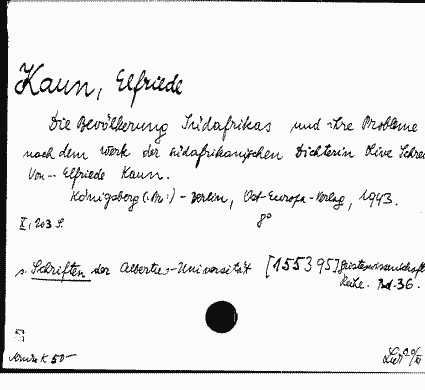 Kaun, Elfriede
Die Bevölkerung Südafrikas und ihre Probleme
nach dem Werk der südafrikanischen Dichterin Olive Schrei
Von -- Elfriede Kaun.
Königsberg (: Pr :) - Berlin, Ost-Europa-Verlag, 1943.
8°
X, 203 S.
s. Schriften der Albertus-Universität [155395] Geisteswissenschaft
Reihe. Bd. 36.
K 50